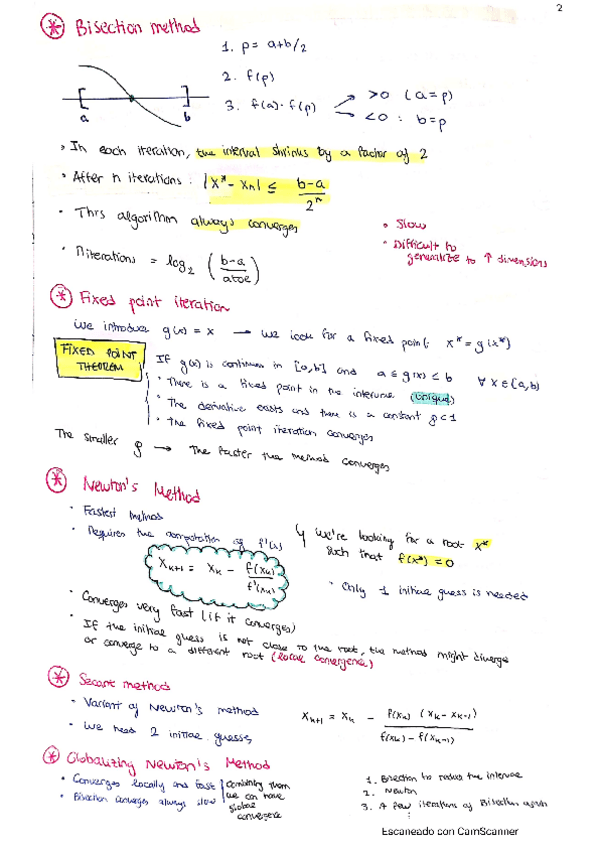 2
* Bisection method
1. p = a+b/2
2. f(p)
3. f(a)·f(p) >0 (a=p)
<0 : b=p
a b
In each iteration, the interval shrinks by a factor of 2
After n iterations: |x*-xn| ≤ b-a / 2^n
This algorithm always converges
• Slow
• Difficult to generalize to ↑ dimensions
n iterations = log2 (b-a / atol)
* Fixed point iteration
We introduce g(x) = x → we look for a fixed point: x* = g(x*)
FIXED POINT THEOREM
If g(x) is continuous in [a,b] and a ≤ g(x) ≤ b ∀ x ∈ [a,b)
There is a fixed point in the interval (unique)
The derivative exists and there is a constant g<1
The fixed point iteration converges
The smaller g → The faster the method converges
* Newton's Method
Fastest method
Requires the computation of f'(x)
↳ We're looking for a root x*
such that f(x*) = 0
Xk+1 = Xk - f(xk) / f'(xk)
Only 1 initial guess is needed
Converges very fast (if it converges)
If the initial guess is not close to the root, the method might diverge
or converge to a different root (local convergence)
* Secant method
Variant of Newton's method
We need 2 initial guesses
Xk+1 = Xk - f(xk) (xk - xk-1) / f(xk) - f(xk-1)
* Globalizing Newton's Method
Converges locally and fast
Bisection converges always slow
combining them
we can have
global
convergence
1. Bisection to reduce the interval
2. Newton
3. A few iterations of Bisection again
⋮
Escaneado con CamScanner